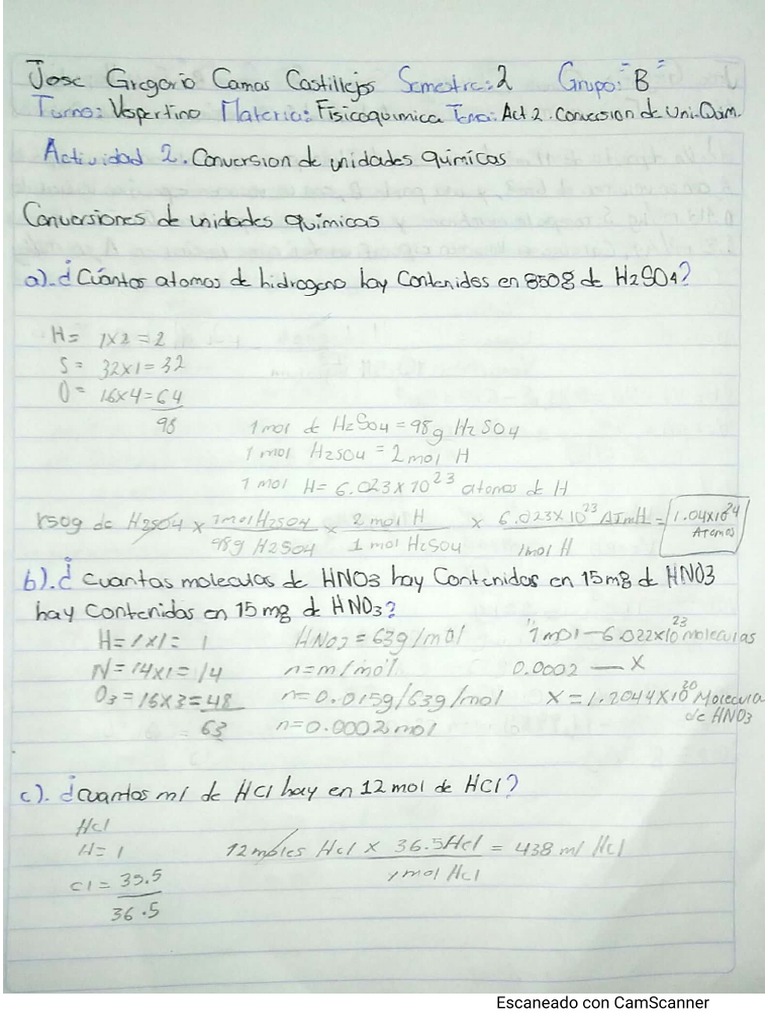 Jose Gregorio Camas Castillejos Semestre: 2 Grupo: "B"
Turno: Vespertino Materia: Fisicoquimica Tema: Act 2. Conversion de Uni. Quim.
Actividad 2. Conversion de unidades químicas
Conversiones de unidades químicas
a). ¿Cúantos atomos de hidrogeno hay Contenidos en 850g de H2SO4?
H= 1x2=2
S= 32x1=32
O= 16x4=64
98
1 mol de H2SO4=98g H2SO4
1 mol H2SO4=2mol H
1 mol H=6.023x10^23 atomos de H
850g de H2SO4 x 1mol H2SO4/98g H2SO4 x 2mol H/1 mol H2SO4 x 6.023x10^23 ATmH/1mol H = 1.04x10^24 Atomos
b). ¿Cuantas moleculas de HNO3 hay Contenidas en 15mg de HNO3
hay Contenidas en 15mg de HNO3?
H=1x1= 1 HNO3=63g/mol 1mol-6.022x10^23 Moleculas
N=14x1=14 n=m/mol 0.0002 — X
O3=16x3=48 n=0.015g/63g/mol X=1.2044x10^20 Molecula de HNO3
63 n=0.0002mol
c). ¿cuantos ml de HCl hay en 12 mol de HCl?
Hcl
H= 1 12moles Hcl x 36.5Hcl/1mol HCl = 438 ml Hcl
cl= 35.5
36.5
Escaneado con CamScanner